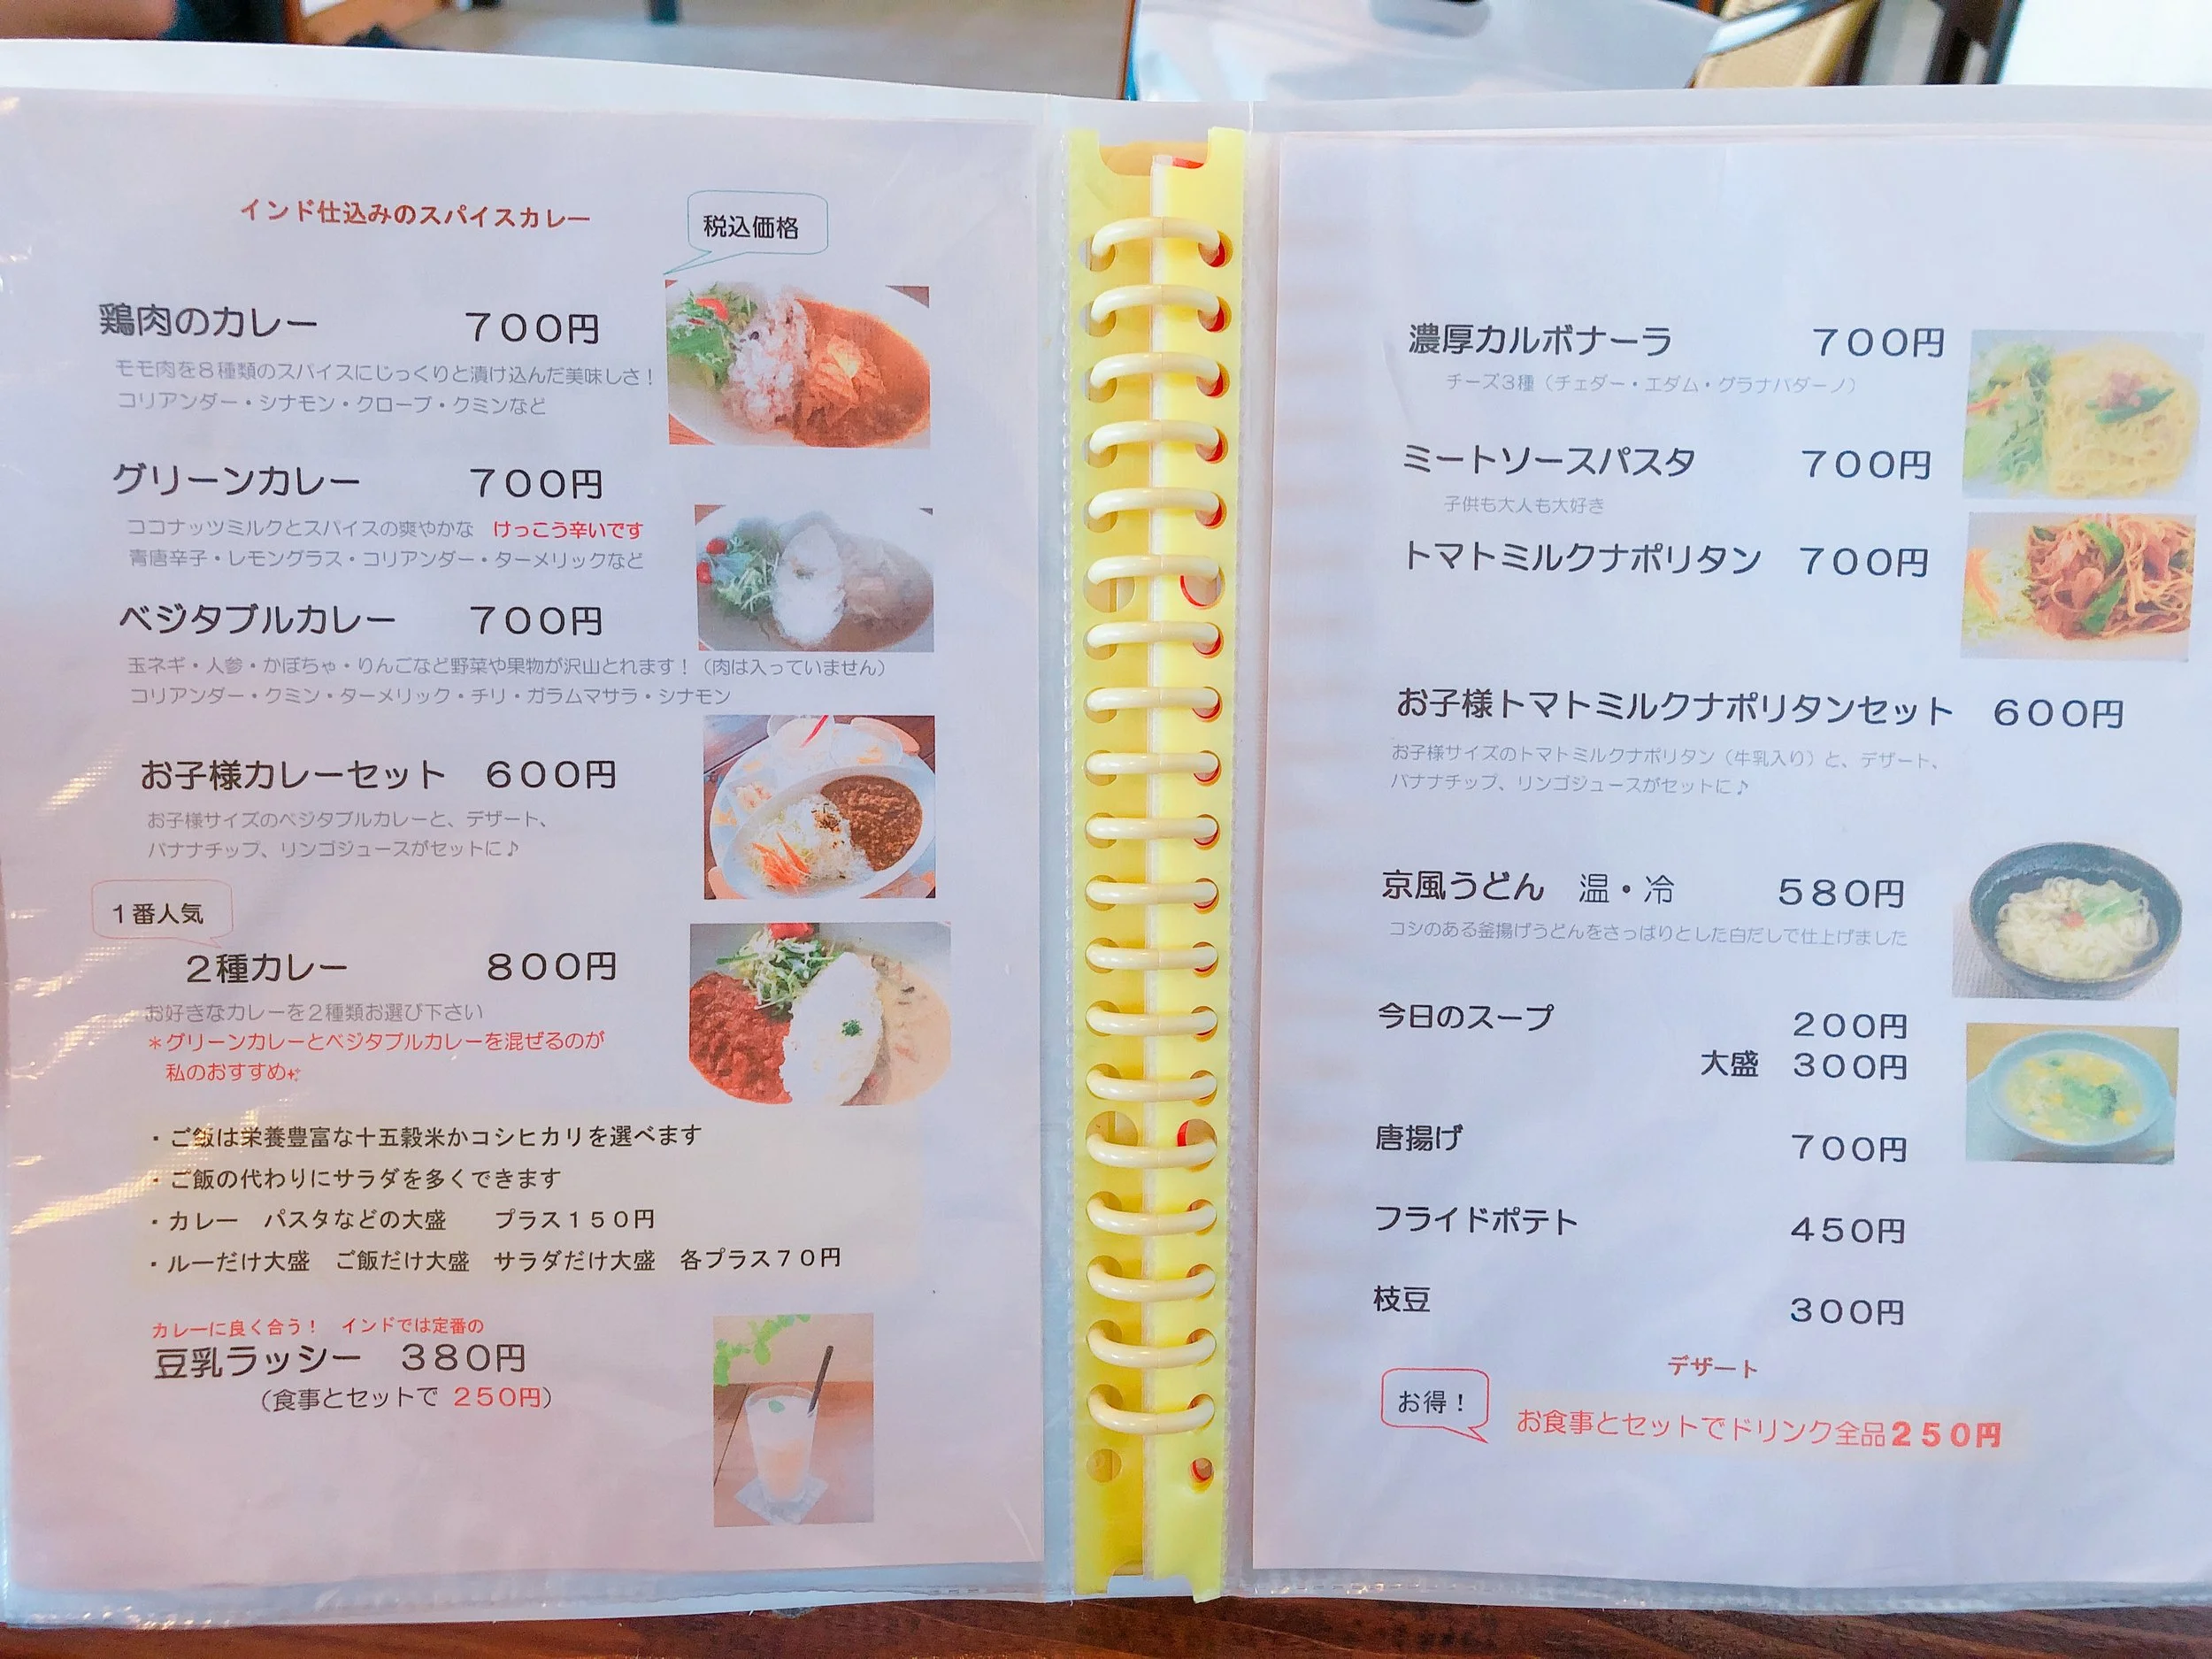 インド仕込みのスパイスカレー
税込価格
鶏肉のカレー　７００円
モモ肉を８種類のスパイスにじっくりと漬け込んだ美味しさ！
コリアンダー・シナモン・クローブ・クミンなど
グリーンカレー　７００円
ココナッツミルクとスパイスの爽やかな　けっこう辛いです
青唐辛子・レモングラス・コリアンダー・ターメリックなど
ベジタブルカレー　７００円
玉ネギ・人参・かぼちゃ・りんごなど野菜や果物が沢山とれます！（肉は入っていません）
コリアンダー・クミン・ターメリック・チリ・ガラムマサラ・シナモン
お子様カレーセット　６００円
お子様サイズのベジタブルカレーと、デザート、
バナナチップ、リンゴジュースがセットに♪
１番人気
２種カレー　８００円
お好きなカレーを２種類お選び下さい
＊グリーンカレーとベジタブルカレーを混ぜるのが
私のおすすめ✨
・ご飯は栄養豊富な十五穀米かコシヒカリを選べます
・ご飯の代わりにサラダを多くできます
・カレー　パスタなどの大盛　プラス１５０円
・ルーだけ大盛　ご飯だけ大盛　サラダだけ大盛　各プラス７０円
カレーに良く合う！　インドでは定番の
豆乳ラッシー　３８０円
（食事とセットで ２５０円）
濃厚カルボナーラ　７００円
チーズ３種（チェダー・エダム・グラナパダーノ）
ミートソースパスタ　７００円
子供も大人も大好き
トマトミルクナポリタン　７００円
お子様トマトミルクナポリタンセット　６００円
お子様サイズのトマトミルクナポリタン（牛乳入り）と、デザート、
バナナチップ、リンゴジュースがセットに♪
京風うどん　温・冷　５８０円
コシのある釜揚げうどんをさっぱりとした白だしで仕上げました
今日のスープ　２００円
大盛　３００円
唐揚げ　７００円
フライドポテト　４５０円
枝豆　３００円
デザート
お得！
お食事とセットでドリンク全品２５０円